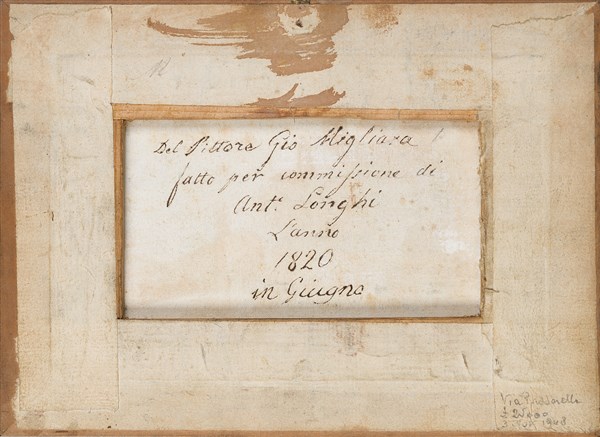 Del Pittore Gio Migliara
fatto per commissione di
Ant.º Longhi
L'anno
1820
in Giugno
Via
1948